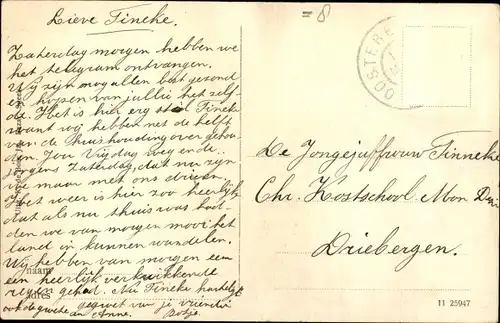 Lieve Tineke.
Zaterdag morgen hebben we
het telegram ontvangen.
Wij zijn nog allen best gezond
en hopen van jullie het zelf-
de. Het is hier erg stil Tineke
want wij hebben met de helft
van de huishouding over gehou-
den. Jou Vrijdag
Zaterdag, dat nu zijn
we maar met ons drieën.
Het weer is hier zoo heerlijk
dat als nu thuis was had-
den we van morgen mooi het
land in kunnen wandelen.
Wij hebben van morgen een
een heerlijk verkwikkende
regen gehad. Nu Tineke hartelijk
gegroet van je vriendin
en Anne. Botje.
naam
adres
= 8
OOSTERBE
De Jongejuffrouw Tinneke
Chr. Kostschool Mon
Driebergen.
11 25947